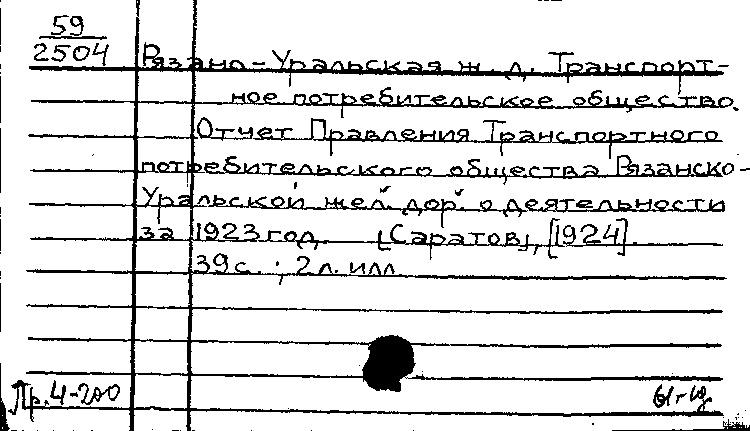 59
2504
Рязано-Уральская ж. д. Транспорт-
ное потребительское общество.
Отчет Правления Транспортного
потребительского общества Рязанско-
Уральской жел. дор. о деятельности
за 1923 год. [Саратов], [1924].
39 с.; 2 л. илл.
Пр. 4-200